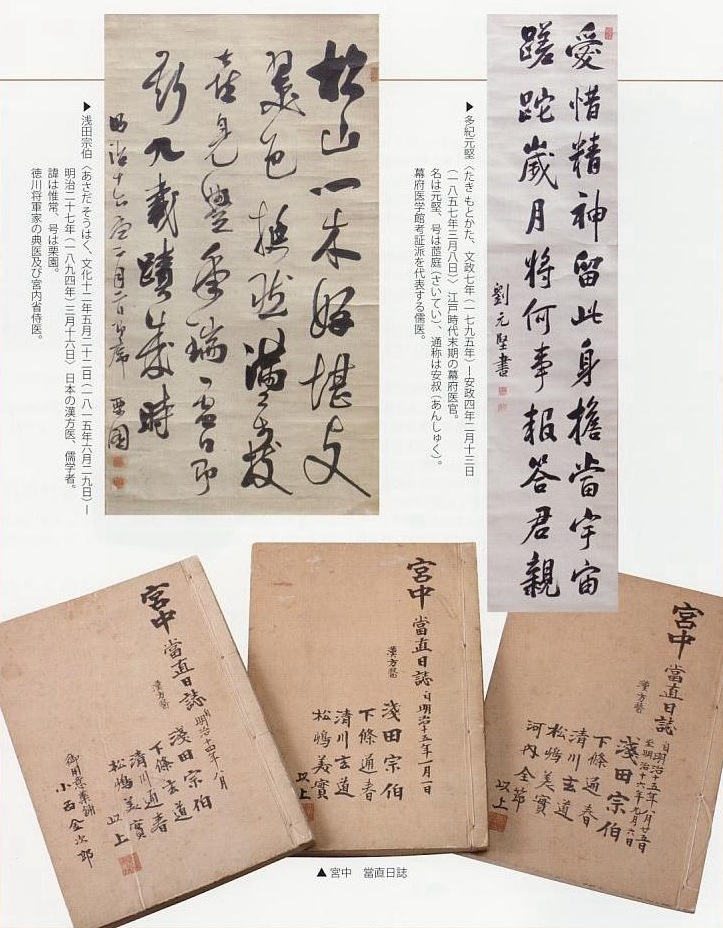 愛惜精神留此身擔當宇宙
蹉跎歲月將何事報答君親
劉元堅書
▶多紀元堅〈たき もとかた、文政七年(一七九五年)ー安政四年二月十三日
(一八五七年三月八日)〉江戸時代末期の幕府医官。
名は元堅、号は茝庭(さいてい)、通称は安叔(あんしゅく)。
幕府医学館考証派を代表する儒医。
山一木好堪
色
喜見豊年瑞
九載蹟時
明治十六二月一日席 栗園
▶浅田宗伯〈あさだ そうはく、文化十二年五月二十二日(一八一五年六月二九日)ー
明治二十七年(一八九四年)三月十六日〉日本の漢方医、儒学者。
諱は惟常。号は栗園。
徳川将軍家の典医及び宮内省侍医。
宮中 當直日誌 自明治十五年八月廿五日
至明治十六年九月六日
漢方醫
淺田宗伯
下條通春
清川玄道
松嶋美實
河内全節
以上
宮中 當直日誌 自明治十五年一月一日
漢方醫
淺田宗伯
下條通春
清川玄道
松嶋美實
以上
宮中 當直日誌 自明治十四年八月
漢方醫
淺田宗伯
下條玄道
清川通春
松嶋美實
以上
御用意薬舗
小西金次郎
▲宮中 當直日誌